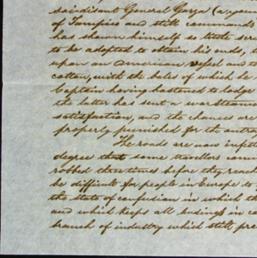 soi-disant General Garza (a pawn
of Turnpios and still commands
has shown himself so
to be adopted to obtain his ends,
upon an American vessel and
cotton, with the bales of which he
Captain having hastened to lodge
the latter has sent a war steamer
satisfaction, and the chances are
properly punished for the outra
The roads are now infest
degree that some travellers
robbed three times before they reach
be difficult for people in Europe to
the state of confusion in which th
and which keeps all business in
branch of industry which still pre